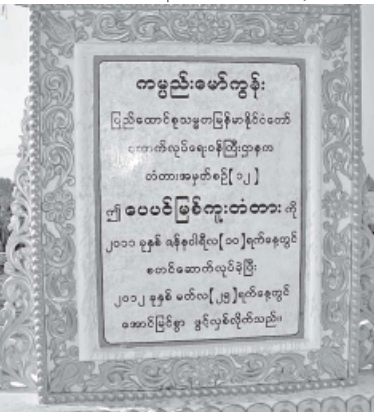 ကမ္ပည်းမော်ကွန်း
ပြည်ထောင်စုသမ္မတမြန်မာနိုင်ငံတော်
ဆောက်လုပ်ရေးဝန်ကြီးဌာန
တံတားအမှတ်စဉ်[၁၂]
ဤ ပေပင်မြစ်ကူးတံတား ကို
၂၀၁၁ ခုနှစ် ဇန်နဝါရီလ[၁၀]ရက်နေ့တွင်
စတင်ဆောက်လုပ်ခဲ့ပြီး
၂၀၁၂ ခုနှစ် မတ်လ[၂၅]ရက်နေ့တွင်
အောင်မြင်စွာ ဖွင့်လှစ်လိုက်သည်။